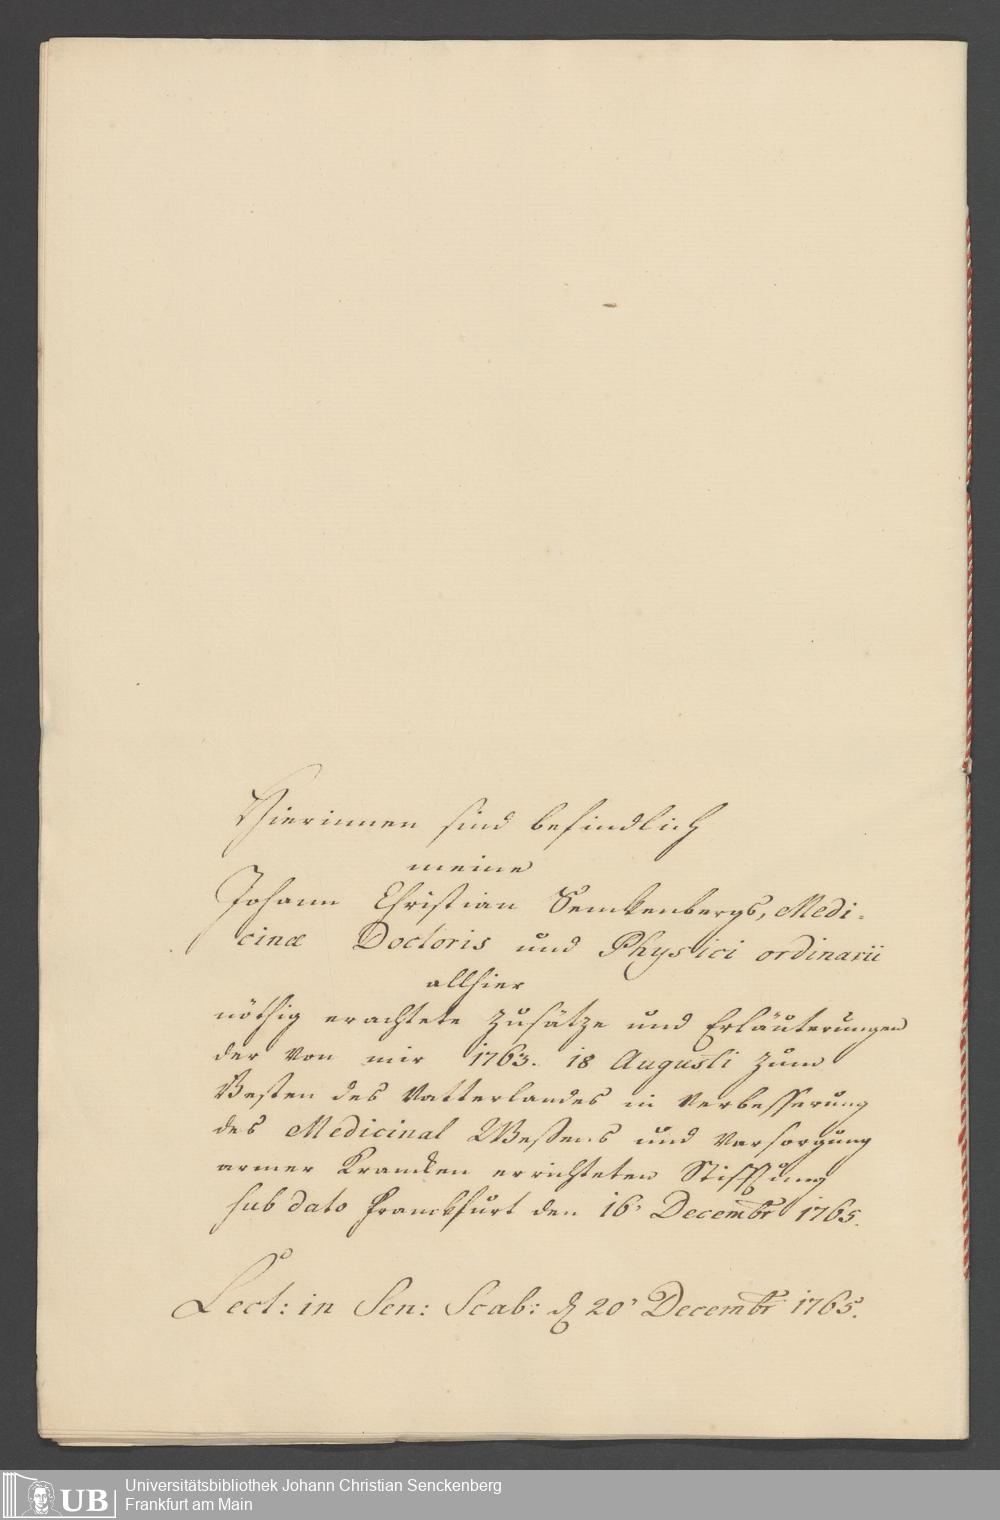 Hierinnen sind befindlich
meine
Johann Christian Senckenbergs, Medi-
cinæ Doctoris und Physici ordinarii
allhier
nöthig erachtete Zusätze und Erläuterungen
der von mir 1763. 18 Augusti zum
Besten des Vatterlandes in Verbesserung
des Medicinal Weßens und Versorgung
armer Krancken errichteten Stifftung
sub dato Franckfurt den 16. Decembr 1765.
Lect: in Sen: Scab: d 20. Decembr 1765.
UB
Universitätsbibliothek Johann Christian Senckenberg
Frankfurt am Main